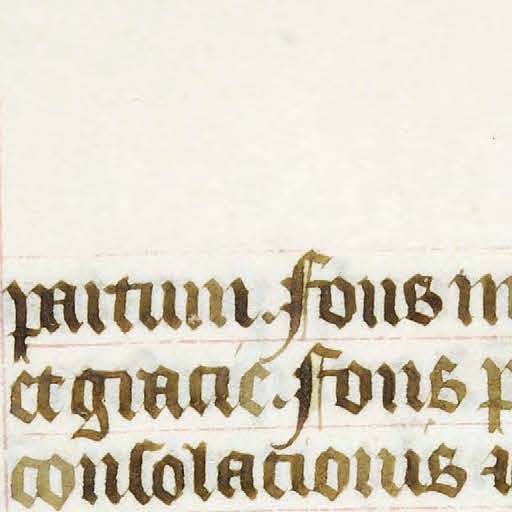 partum. Fons
et gracie. Fons
consolacionis